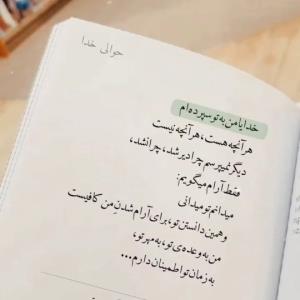 حوالی خدا
خدایا من به تو سپرده‌ام
هر آنچه هست، هر آنچه نیست
دیگر نمیپرسم چرا دیر شد، چرا نشد،
فقط آرام میگویم:
میدانم تو میدانی
و همین دانستن تو، برای آرام شدنِ من کافیست
من به وعده‌ی تو، به مهر تو،
به زمان تو اطمینان دارم...